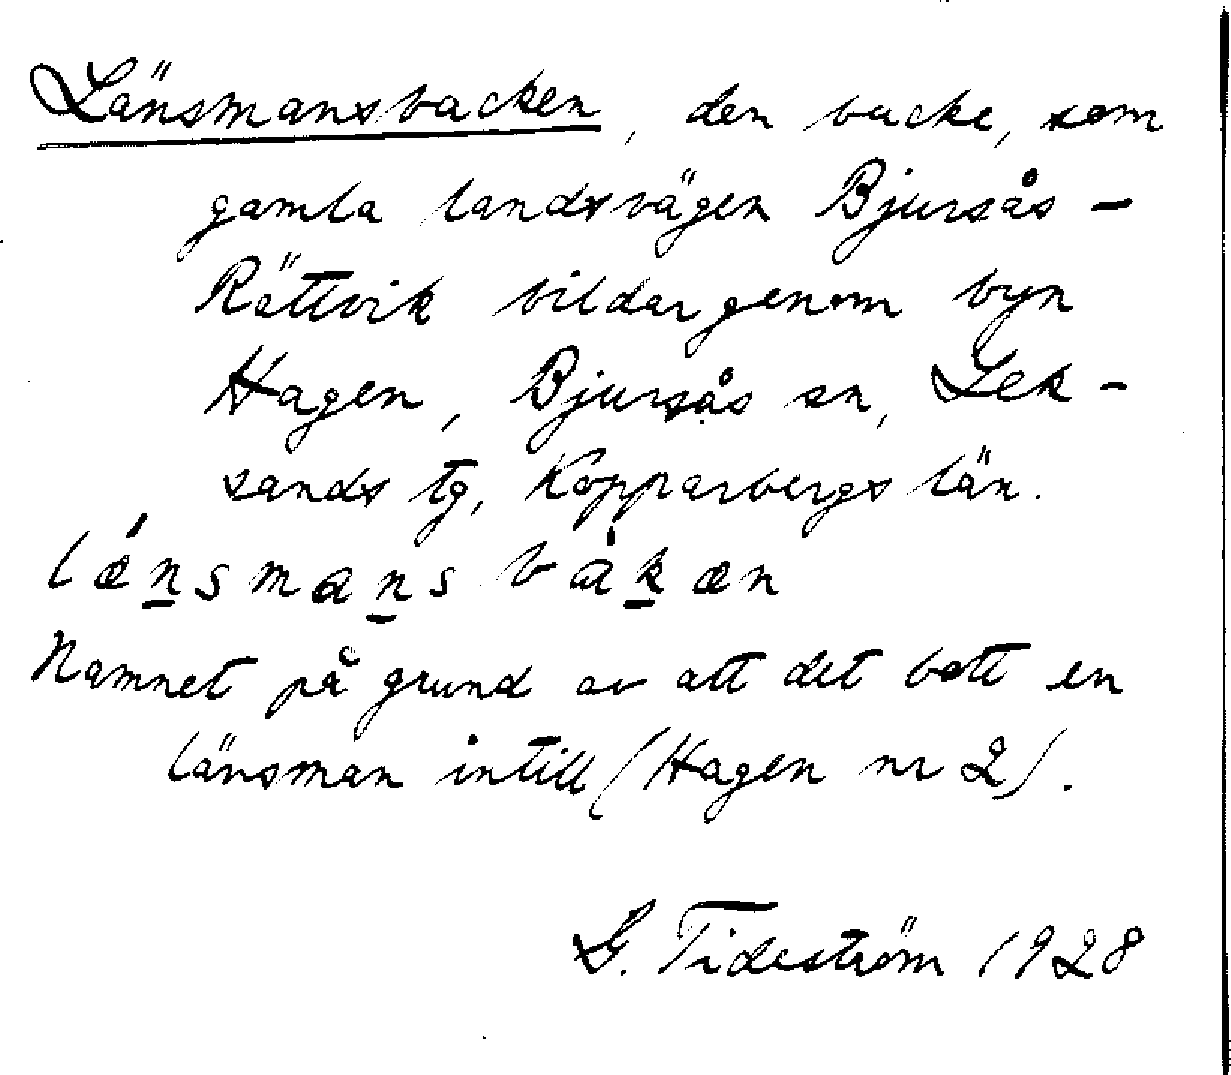 Länsmansbacken, den backe, som
gamla landsvägen Bjursås -
Rättvik bildar genom byn
Hagen, Bjursås sn, Lek-
sands tg, Kopparbergs län.
lǽnsmans bàkæn
Namnet på grund av att det bott en
länsman intill (Hagen nr 2).
G. Tideström 1928